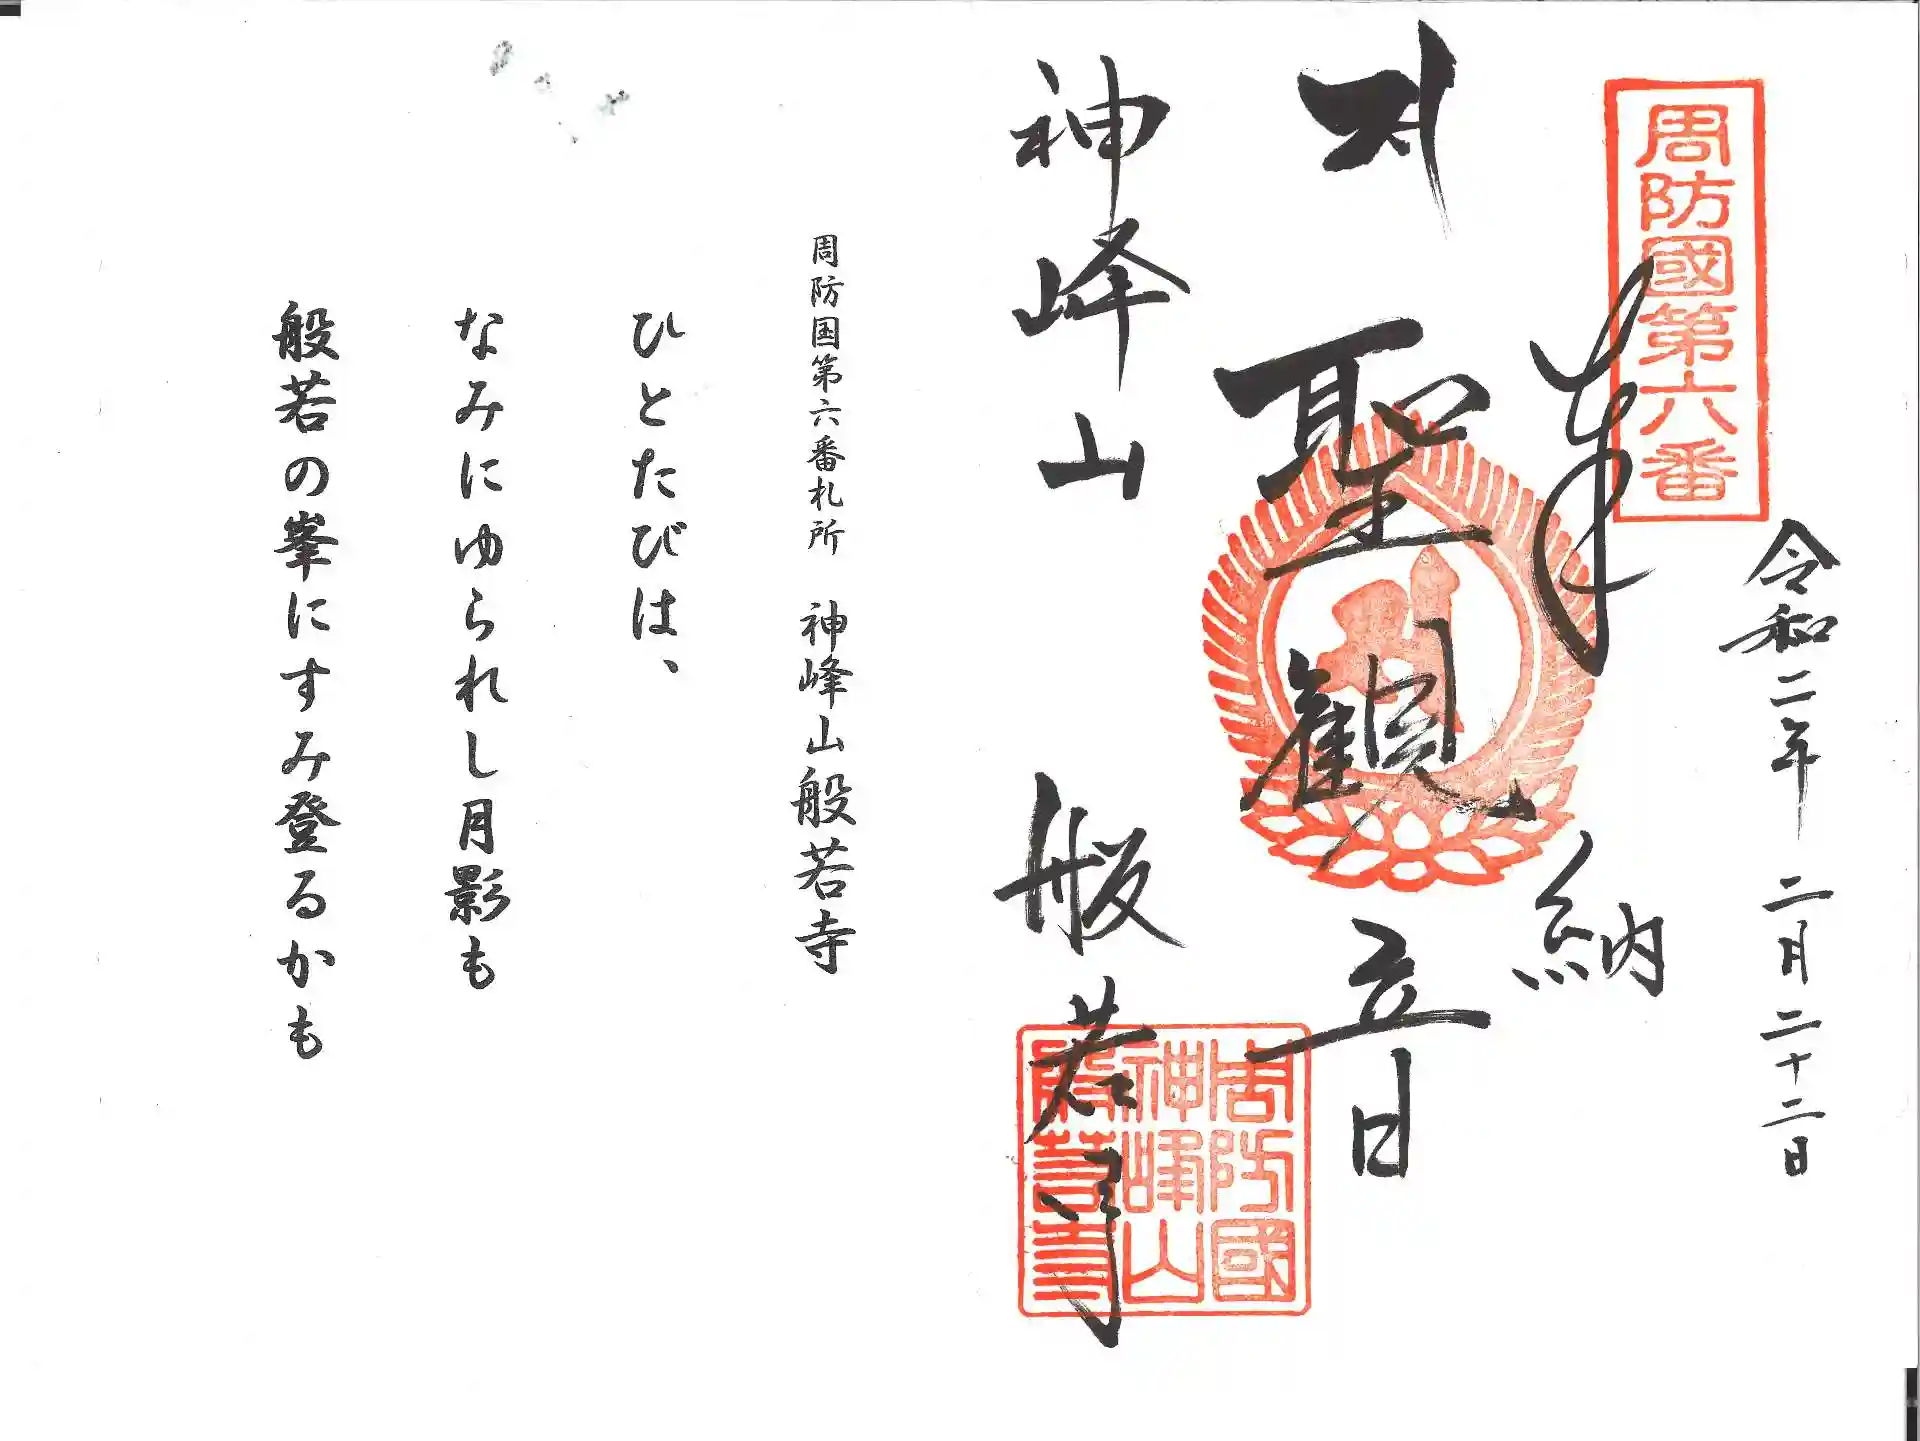 周防國第六番
令和二年 二月二十二日
奉 納
聖観音
神峰山 般若寺
周防國
神峰山
般若寺
周防国第六番札所 神峰山般若寺
ひとたびは、
なみにゆられし月影も
般若の峯にすみ登るかも